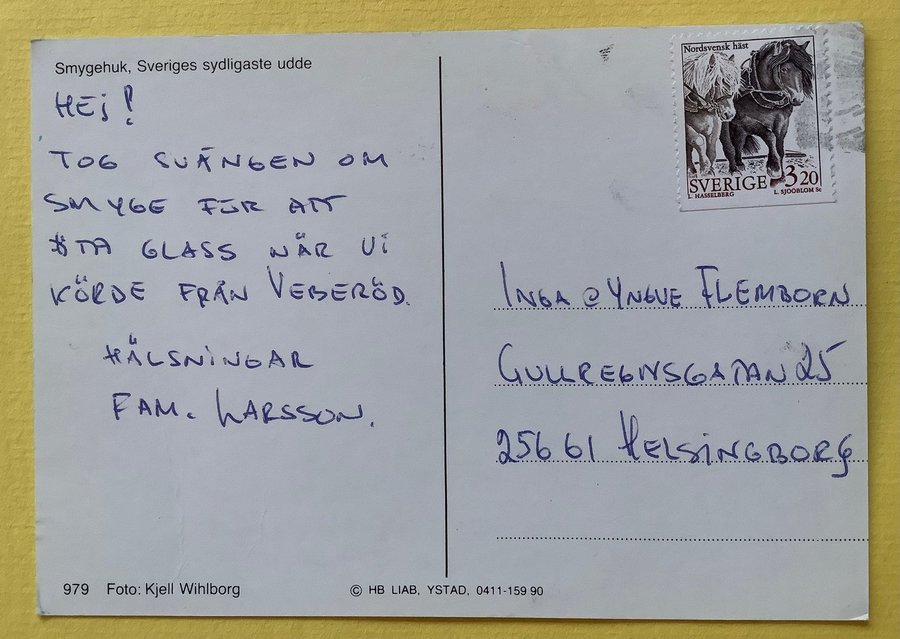 Smygehuk, Sveriges sydligaste udde
HEJ!
TOG SVÄNGEN OM
SMYGE FÖR ATT
ÄTA GLASS NÄR VI
KÖRDE FRÅN VEBERÖD.
HÄLSNINGAR
FAM. LARSSON.
979 Foto: Kjell Wihlborg
© HB LIAB, YSTAD, 0411-159 90
Nordsvensk häst
SVERIGE 3 20
L. HASSELBERG L. SJÖÖBLOM Sc
INGA @ YNGVE FLEMBORN
GULLREGNSGATAN 25
256 61 HELSINGBORG